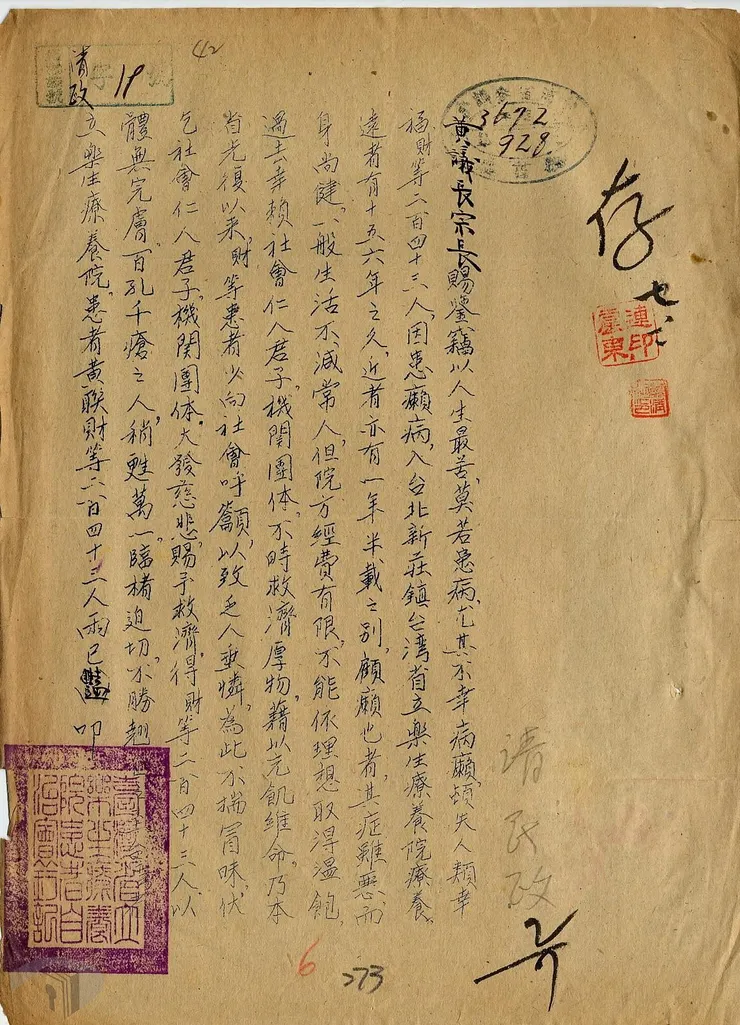 黃議長宗長賜鑒竊以人生最苦莫若患病尤其不幸病癩頓失人類幸
福財等二百四十三人因患癩病入台北新莊鎮台湾省立樂生療養院療養
遠者有十五六年之久近者亦有一年半載之別顧癩也者其症雖惡而
身尚健一般生活不減常人但院方經費有限不能依理想取得溫飽
過去幸賴社會仁人君子機関團体不時救濟厚物藉以充飢維命乃本
省光復以來財等患者少向社會呼籲以致乏人垂憐為此不揣冒昧伏
乞社會仁人君子機関團体大發慈悲賜予救濟得財等二百四十三人以
體無完膚百孔千瘡之人稍甦萬一臨楮迫切不勝翹
立樂生療養院患者黃聯財等二百四十三人
叩
存
請民政
3672
928
19
42
6
273
臺灣省立
樂生療養
院患者自
治會鈐記